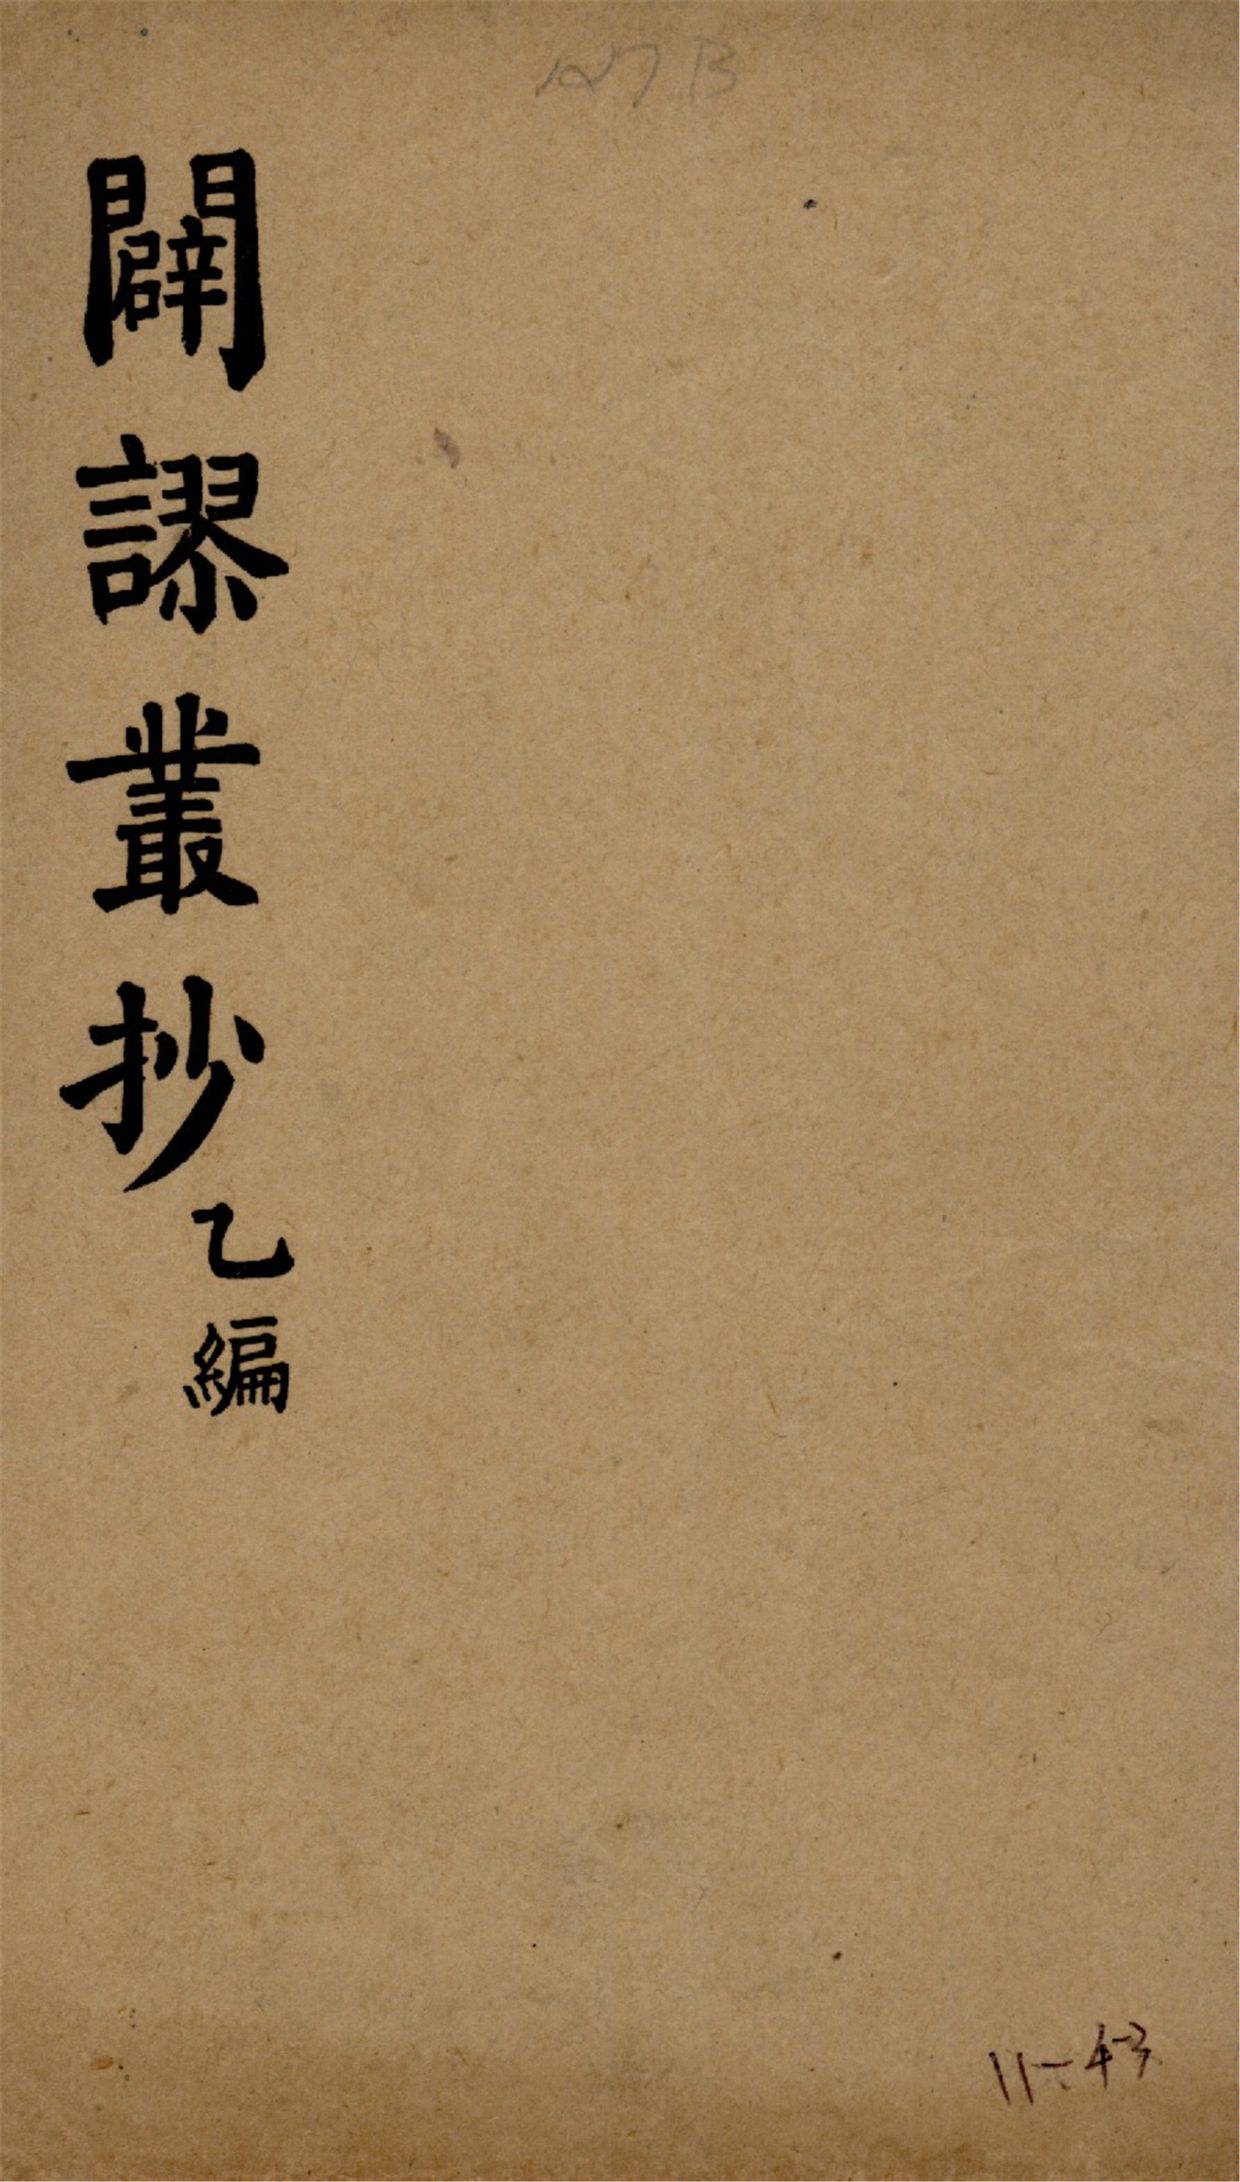 闢謬叢抄
乙編
11-43